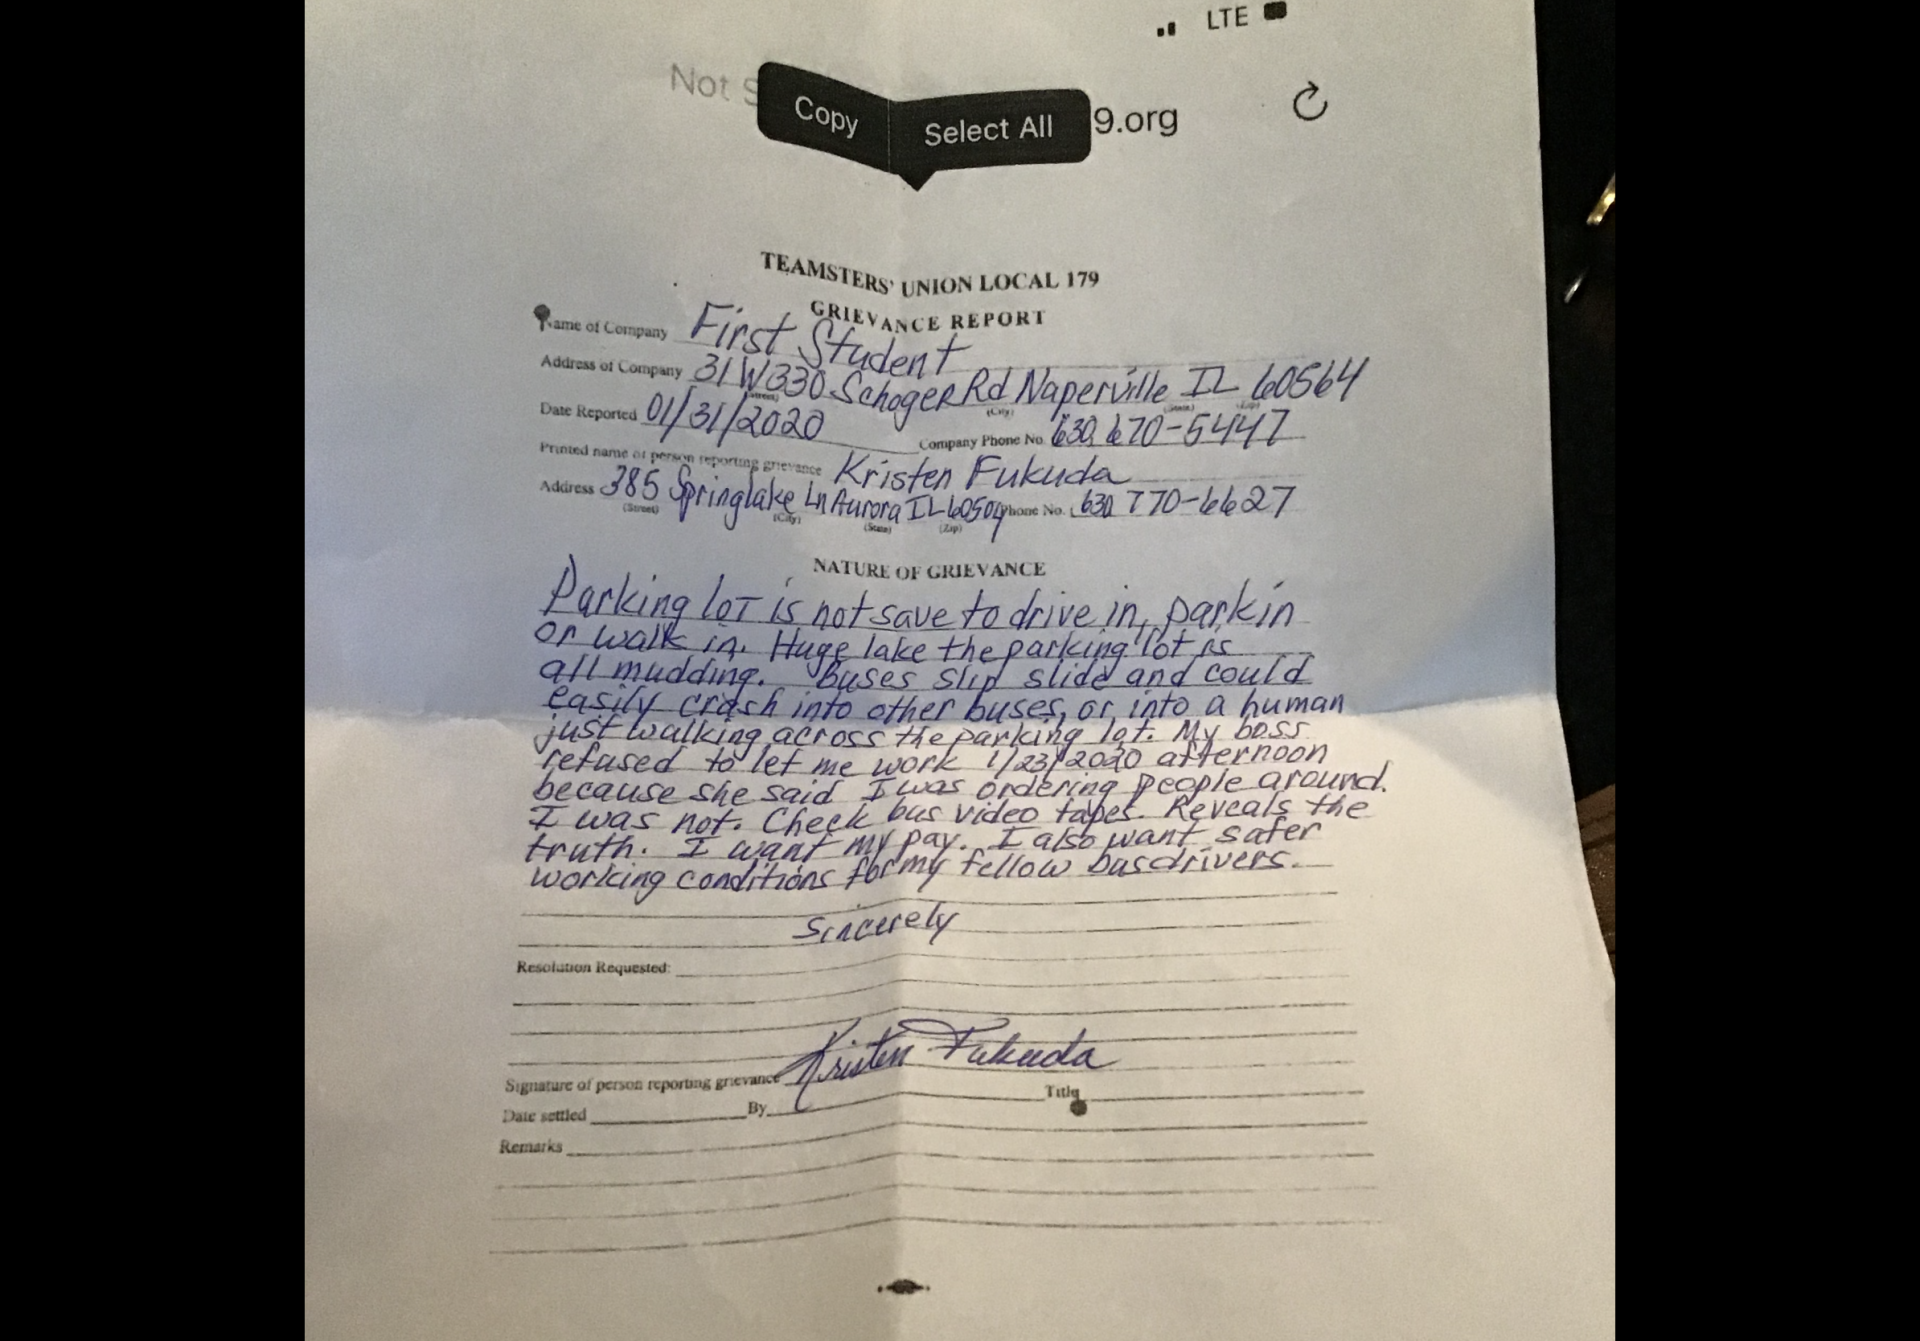 LTE
Not S
Copy
Select All
9.org
TEAMSTERS' UNION LOCAL 179
GRIEVANCE REPORT
Name of Company First Student
Address of Company 31W330 Schoger Rd Naperville IL 60564
(Street) (City) (State) (Zip)
Date Reported 01/31/2020 Company Phone No. 630 670-5447
Printed name of person reporting grievance Kristen Fukuda
Address 385 Springlake Ln Aurora IL 60504 Phone No. ( 630 770-6627
(Street) (City) (State) (Zip)
NATURE OF GRIEVANCE
Parking lot is not save to drive in, park in
or walk in. Huge lake the parking lot is
all mudding. Buses slip slide and could
easily crash into other buses, or into a human
just walking across the parking lot. My boss
refused to let me work 1/23/2020 afternoon
because she said I was ordering people around.
I was not. Check bus video tapes. Reveals the
truth. I want my pay. I also want safer
working conditions for my fellow busdrivers.
Sincerely
Resolution Requested:
Signature of person reporting grievance Kristen Fukuda
Title
Date settled By
Remarks